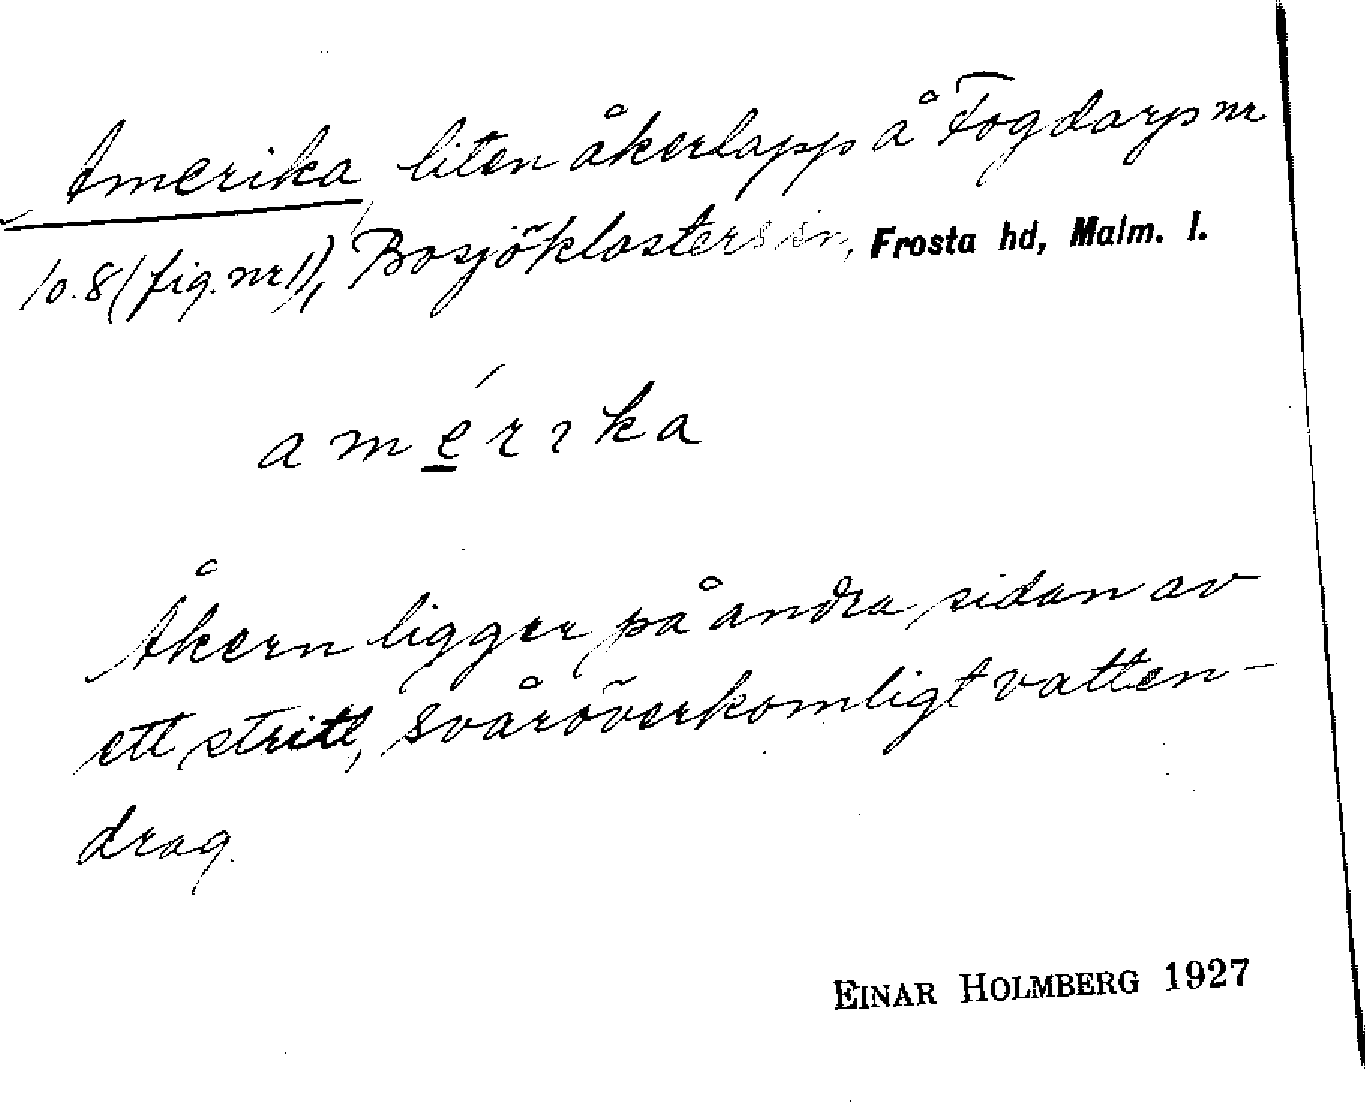 Amerika, liten åkerlapp å Fogdarps nr
10.8 (fig. nr 1), Bosjöklosters sn, Frosta hd, Malm. l.
amérika
Åkern ligger på andra sidan av
ett stritt, svåröverkomligt vatten-
drag.
EINAR HOLMBERG 1927